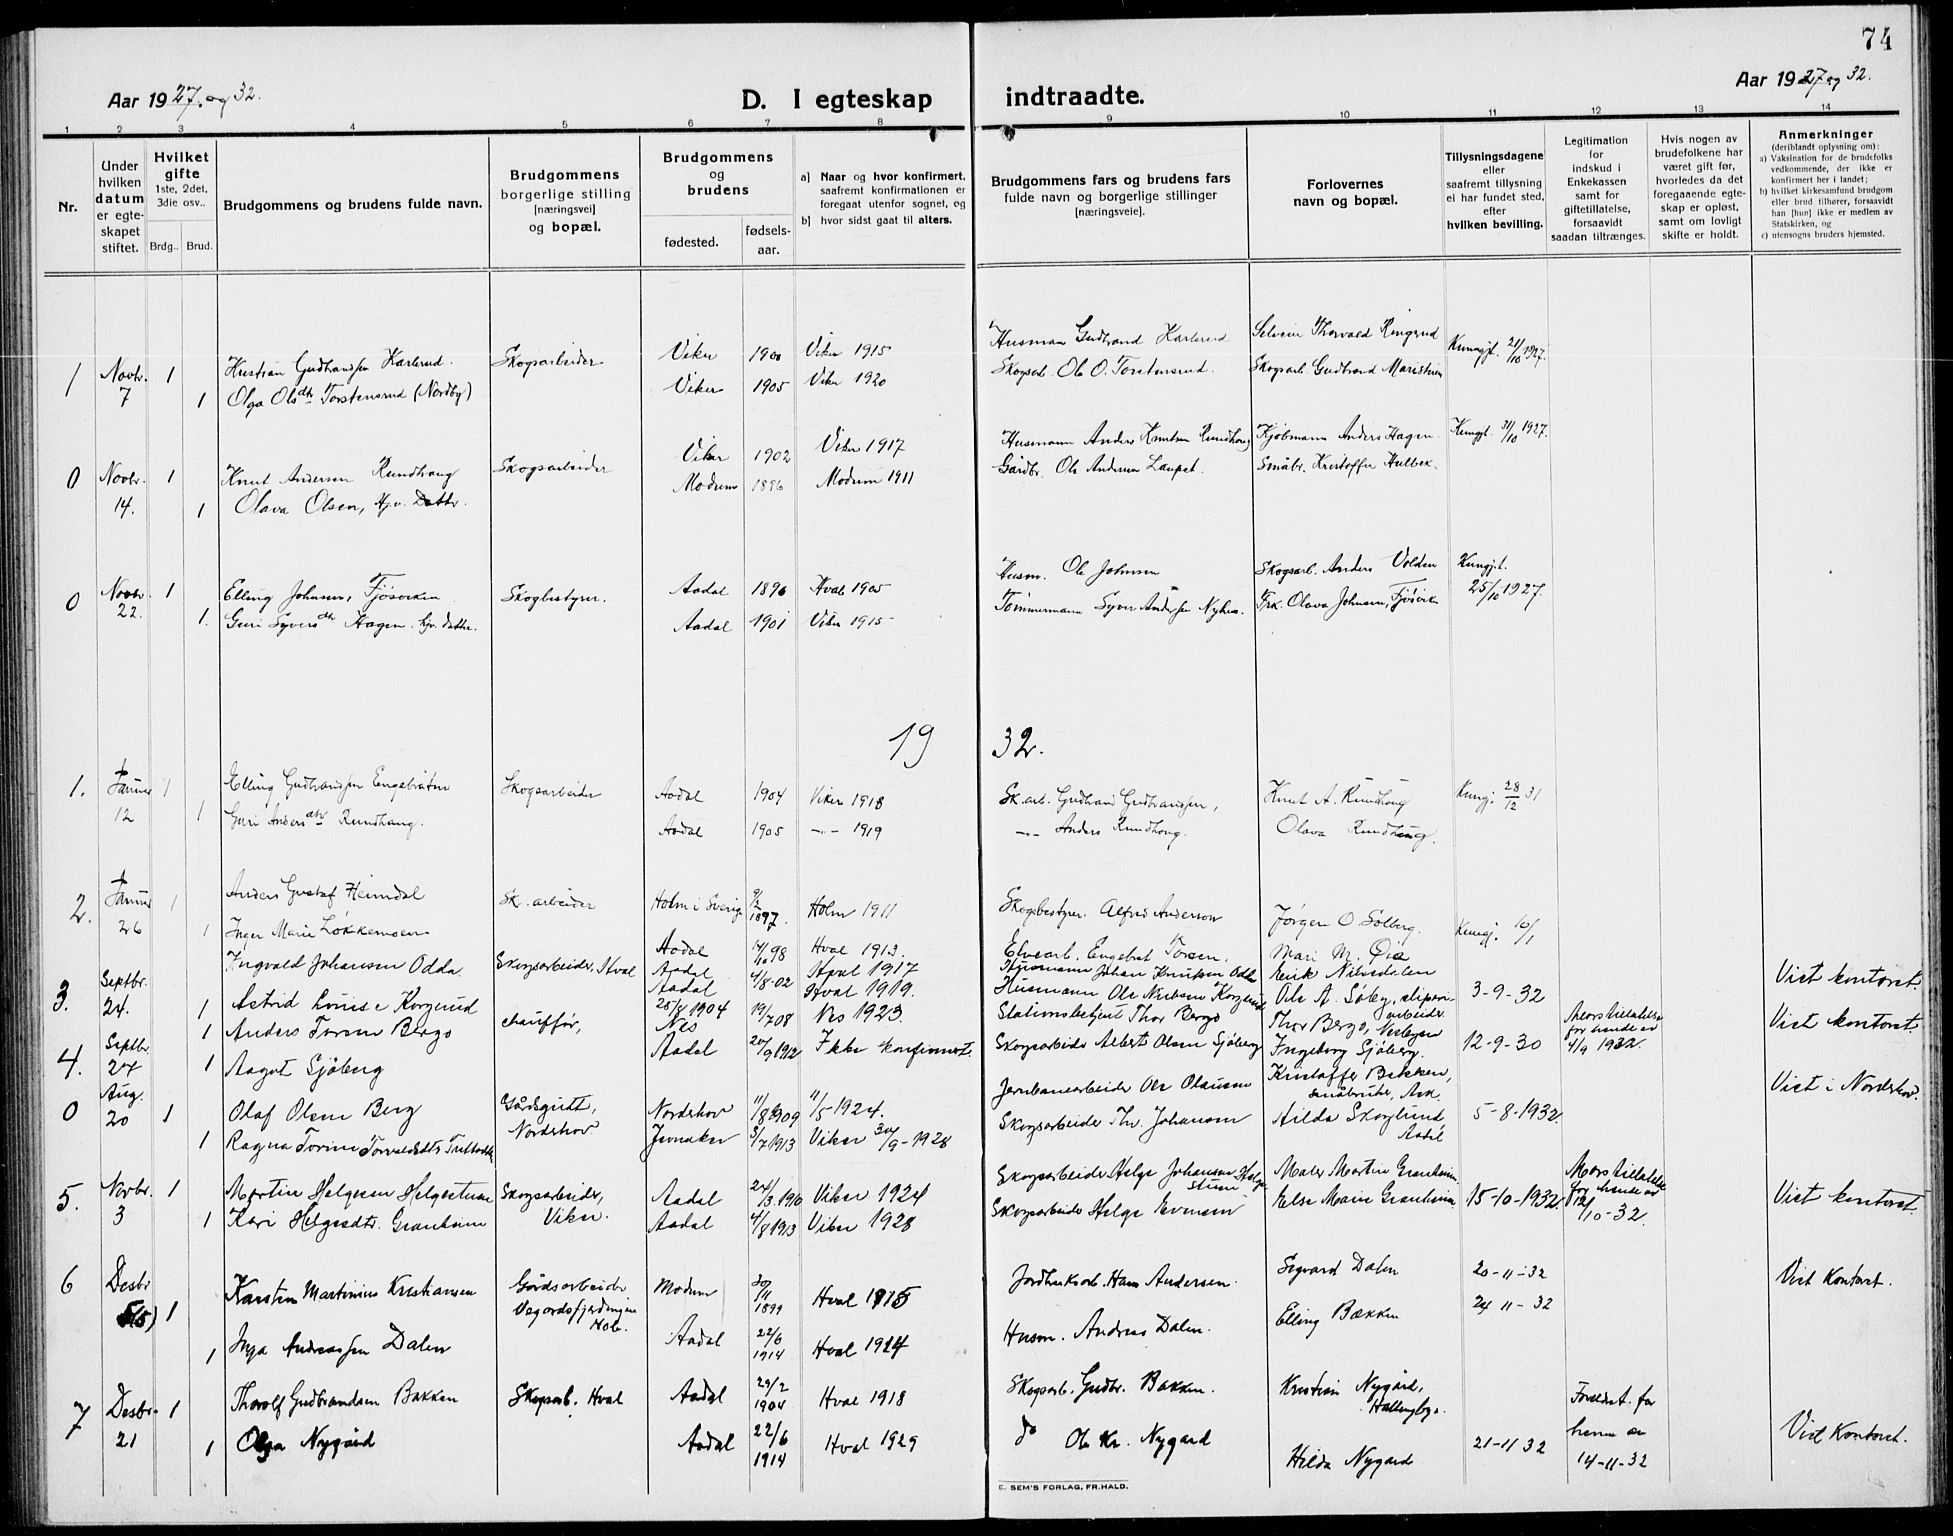 74
Aar 1927. og 32.
D. I egteskap
indtraadte.
Aar 1927 og 32.
1 2 3 4 5 6 7 8 9 10 11 12 13 14
Nr.
Under
hvilken
datum
er egte-
skapet
stiftet.
Hvilket
gifte
1ste, 2det,
3die osv..
Brdg.. Brud.
Brudgommens og brudens fulde navn.
Brudgommens
borgerlige stilling
[næringsvei]
og bopæl.
Brudgommens
og
brudens
fødested.
fødsels-
aar.
a] Naar og hvor konfirmert,
saafremt konfirmationen er
foregaat utenfor sognet, og
b] hvor sidst gaat til alters.
Brudgommens fars og brudens fars
fulde navn og borgerlige stillinger
[næringsveie].
Forlovernes
navn og bopæl.
Tillysningsdagene
eller
saafremt tillysning
ei har fundet sted,
efter
hvilken bevilling.
Legitimation
for
indskud i
Enkekassen
samt for
giftetillatelse,
forsaavidt
saadan tiltrænges.
Hvis nogen av
brudefolkene har
været gift før,
hvorledes da det
foregaaende egte-
skap er opløst,
samt om lovligt
skifte er holdt.
Anmerkninger
(deriblandt oplysning om):
a) Vaksination for de brudefolks
vedkommende, der ikke er
konfirmert her i landet;
b) hvilket kirkesamfund brudgom
eller brud tilhører, forsaavidt
han [hun] ikke er medlem av
Statskirken, og
c) utensogns bruders hjemsted.
1 Novbr. 1 Kristian Gudbrandsen Karlerud. Skogsarbeider Viker 1900 Viker 1915 Husman Gudbrand Karlerud Selveier Thorvald Ringerud Kunngjt. 21/10 1927.
7 1 Olga Olsdtr Torstensrud (Nordby) Viker 1905 Viker 1920 Skogsarb. Ole O. Torstensrud. Skogsarb. Gudbrand Maristuen
0 Novbr. 1 Knut Andersen Rundhaug Skogsarbeider Viker 1902 Viker 1917 Husmann Anders Knutsen Rundhaug Kjøbmann Anders Hagen Kungjt. 31/10 1927.
14. 1 Olava Olsen, Hjv. Datter. Modum 1896 Modum 1911 Gårdbr. Ole Andersen Småbr. Kristoffer
0 Novbr. 1 Elling Johnsen, Fjøsviken Skogbestyrer. Aadal 1896 Hval 1905 Husm. Ole Johnsen Skogsarb. Anders Volden Kungjt.
22. 1. Guri Syversdtr Hagen. hjv. datter. Aadal 1901 Viker 1915 Tømmermann Syver Andersen Nyhus. Frk. Olava Johnsen, Fjøsviken 25/10 1927.
19 32.
1. Januar 1 Elling Gudbrandsen Engebråten Skogsarbeider Aadal 1904 Viker 1918 Sk. arb. Gudbrand Gudbrandsen, Knut A. Rundhaug Kungj. 28/12 31
12 1 Guri Andersdtr Rundhaug. Aadal 1905 -"- 1919 -"- Anders Rundhaug. Olava Rundhaug.
2. Januar 1 Anders Gustaf Heimdal Sk. arbeider Holm i Sverige 9/2 1897. Holm 1911 Skogsbestyrer. Alfred Anderson Jørgen O Sølberg. Kungj. 10/1
26 1 Inger Marie Løkkemoen Aadal 98 Hval 1913. Elvearb. Engebret Torsen. Mari M.
3. Septbr. Ingvald Johansen Odda. Skogsarbeider, Hval Aadal 4/8-02 Hval 1917 Husmann Johan Knutsen Odda Vist kontoret.
24. 1 Astrid Louise Korgerud Aadal 25/8 1904 Hval 1919. Husmann Ole Nielsen Korgerud Ole A. Søby, 3-9-32
4. Septbr. 1 Anders Torsen Bergo chauffør, Nes 19/7 08 Nes 1923. Stationsbetjent Thor Bergo Thor Bergo, Mors tillatelse for hende av 4/9 1932. Vist kontoret
24 1 Aagot Sjøberg Aadal 20/9 1912 Ikke konfirmert. Skogsarbeider Albert Olsen Sjøberg Ingeborg Sjøberg. 12-9-30
0 Aug. 20 1 Olaf Olsen Berg Gårdsgutt, Norderhov Norderhov 11/8 1909 11/5-1924. Jernbanearbeider Ole Olausen Kristoffer Bakken, småbruker, Ask. 5-8-1932. Vist i Norderhov.
1 Ragna Jevnaker 3/7 1913 Viker 30/9-1928 Skogsarbeider Th. Johansen Hilda Skoglund, Aadal
5. Novbr. 1 Martin Helgesen Helgestuen Skogsarbeider, Aadal 24/3. 1910 Viker 1924 Skogsarbeider Helge Johansen Helgestuen Maler Martin Granheim. Mors tillatelse for hende av 12/10-32. Vist kontoret.
3 1 Kari Helgesdtr. Granheim Viker. Aadal 4/8 1913 Viker 1928 Skogsarbeider Helge Evensen Else Marie Granheim 15-10-1932.
6 Desbr Karsten Martinius Kristiansen Gårdsarbeider Modum 30/11 1899 Hval 1915 Jordbruksarb. Hans Andersen. Sigvard Dalen 20-11-32 Vist Kontoret.
5(5) 1 Vegårdsfjerdingen Hole. Elling Bækken 24-11-32
1 Inga Andreassen Dalen Aadal 22/6 1914 Hval 1924 Husm. Andreas Dalen.
7 Desbr. 1 Thorolf Gudbrandsen Bakken Skogsarb. Hval Aadal 29/2 1904 Hval 1918 Skogsarb. Gudbr. Bakken. Kristian Nygård, Hallingby. Foreldret. for
21 1 Olga Nygård Aadal 22/6 1914 Hval 1929 do Ole Kr. Nygård Hilda Nygård 21-11 32 henne av 14-11-32 Vist Kontoret.
E. SEM'S FORLAG, FR.HALD.